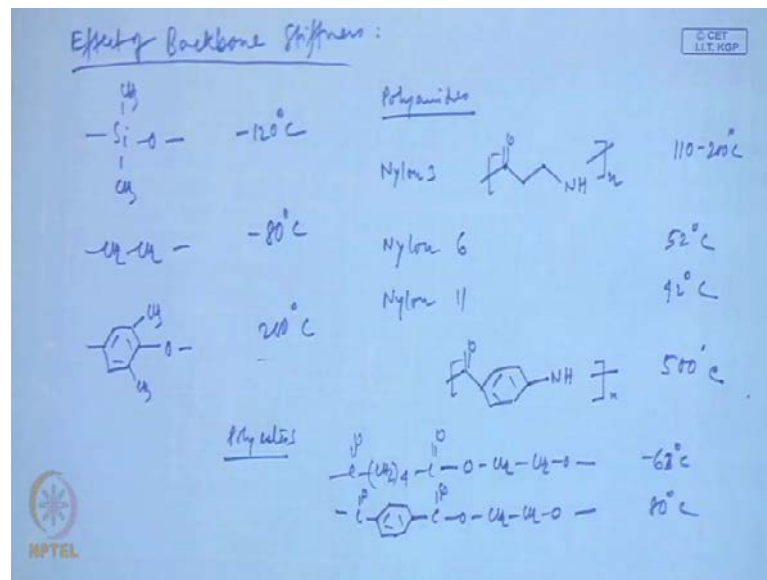 Effect of Backbone Stiffness:
© CET
I.I.T. KGP
CH3
-Si-O- -120°C
CH3
-CH2-CH2- -80°C
CH3
-O- 200°C
CH3
Polyamides
Nylon 3 O NH n 110-200°C
Nylon 6 52°C
Nylon 11 42°C
O NH n 500°C
Polyesters
O O
-C-(CH2)4-C-O-CH2-CH2-O- -62°C
O O
-C- -C-O-CH2-CH2-O- 80°C
NPTEL